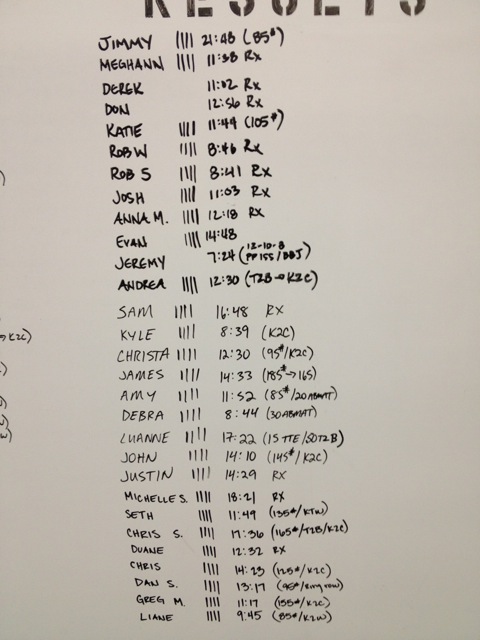 RESULTS
JIMMY |||| 21:48 (85#)
MEGHANN |||| 11:38 Rx
DEREK 11:02 Rx
DON 12:56 Rx
KATIE |||| 11:44 (105#)
ROB W |||| 8:46 Rx
ROB S |||| 8:41 Rx
JOSH |||| 11:03 Rx
ANNA M. |||| 12:18 Rx
EVAN |||| 14:48
JEREMY 7:24 (12-10-8 PP155/BBJ)
ANDREA |||| 12:30 (T2B→K2C)
SAM |||| 16:48 RX
KYLE |||| 8:39 (K2C)
CHRISTA |||| 12:30 (95#/K2C)
JAMES |||| 14:33 (185#→165)
AMY |||| 11:52 (85#/20 ABMAT)
DEBRA |||| 8:44 (30 ABMAT)
LUANNE |||| 17:22 (15 TTE/50T2B)
JOHN |||| 14:10 (145#/K2C)
JUSTIN |||| 14:29 RX
MICHELLE S. |||| 18:21 RX
SETH |||| 11:49 (135#/KTW)
CHRIS S. |||| 17:36 (165#/T2B/K2C)
DUANE |||| 12:32 RX
CHRIS |||| 14:23 (125#/K2C)
DAN S. |||| 13:17 (95#/Ring row)
GREG M. |||| 11:17 (155#/K2C)
LIANE |||| 9:45 (85#/K2W)
→K2C)